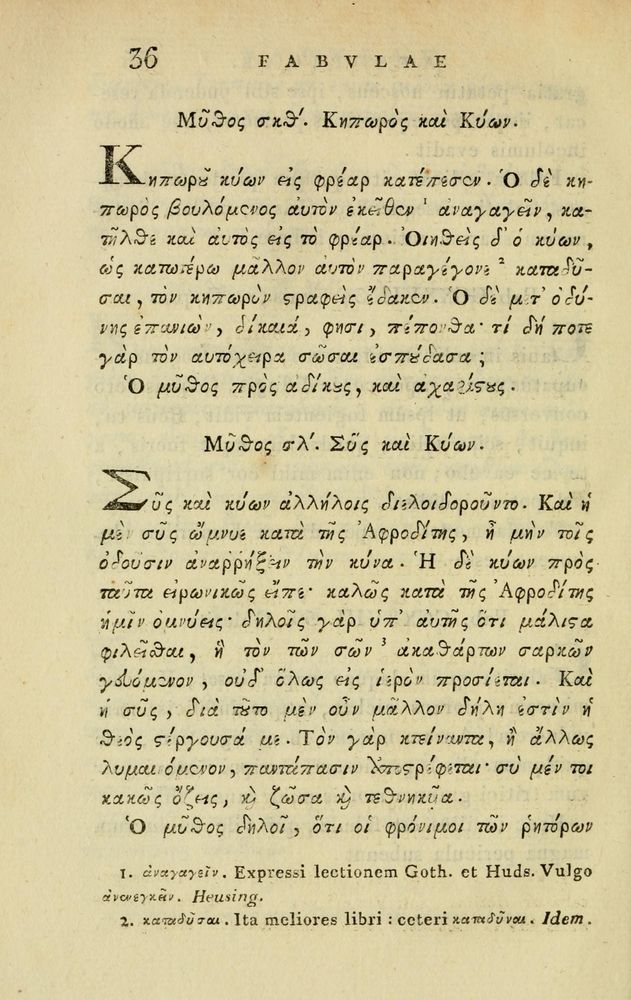 36 FABVLAE
Μῦθος σκθ'. Κηπωρὸς καὶ Κύων.
Κηπωροῦ κύων εἰς φρέαρ κατέπεσεν. Ὁ δὲ κη-
πωρὸς βουλόμενος αὐτὸν ἐκεῖθεν 1 ἀναγαγεῖν, κα-
τῆλθε καὶ αὐτὸς εἰς τὸ φρέαρ. Οἰηθεὶς δ' ὁ κύων,
ὡς κατωτέρω μᾶλλον αὐτὸν παραγέγονε 2 καταδῦ-
σαι, τὸν κηπωρὸν στραφεὶς ἔδακεν. Ὁ δὲ μετ' ὀδύ-
νης ἐπανιὼν, δίκαιά, φησι, πέπονθα· τί δή ποτε
γὰρ τὸν αὐτόχειρα σῶσαι ἐσπούδασα;
Ὁ μῦθος πρὸς ἀδίκους, καὶ ἀχαρίστους.
Μῦθος σλ'. Σῦς καὶ Κύων.
Σῦς καὶ κύων ἀλλήλοις διελοιδοροῦντο. Καὶ ἡ
μὲν σῦς ὤμνυε κατὰ τῆς Ἀφροδίτης, ἦ μὴν τοῖς
ὀδοῦσιν ἀναρρήξειν τὴν κύνα. Ἡ δὲ κύων πρὸς
ταῦτα εἰρωνικῶς εἶπε· καλῶς κατὰ τῆς Ἀφροδίτης
ἡμῖν ὀμνύεις· δηλοῖς γὰρ ὑπ' αὐτῆς ὅτι μάλιστα
φιλεῖσθαι, ἣ τὸν τῶν σῶν 3 ἀκαθάρτων σαρκῶν
γευόμενον, οὐδ' ὅλως εἰς ἱερὸν προσίεται. Καὶ
ἡ σῦς, διὰ τοῦτο μὲν οὖν μᾶλλον δήλη ἐστὶν ἡ
θεὸς στέργουσά με. Τὸν γὰρ κτείναντα, ἢ ἄλλως
λυμαινόμενον, παντάπασιν ἀποστρέφεται· σὺ μέν τοι
κακῶς ὄζεις, καὶ ζῶσα καὶ τεθνηκυῖα.
Ὁ μῦθος δηλοῖ, ὅτι οἱ φρόνιμοι τῶν ῥητόρων
1. ἀναγαγεῖν. Expressi lectionem Goth. et Huds. Vulgo
ἀνενεγκεῖν. Heusing.
2. καταδῦσαι. Ita meliores libri : ceteri καταδῦναι. Idem.